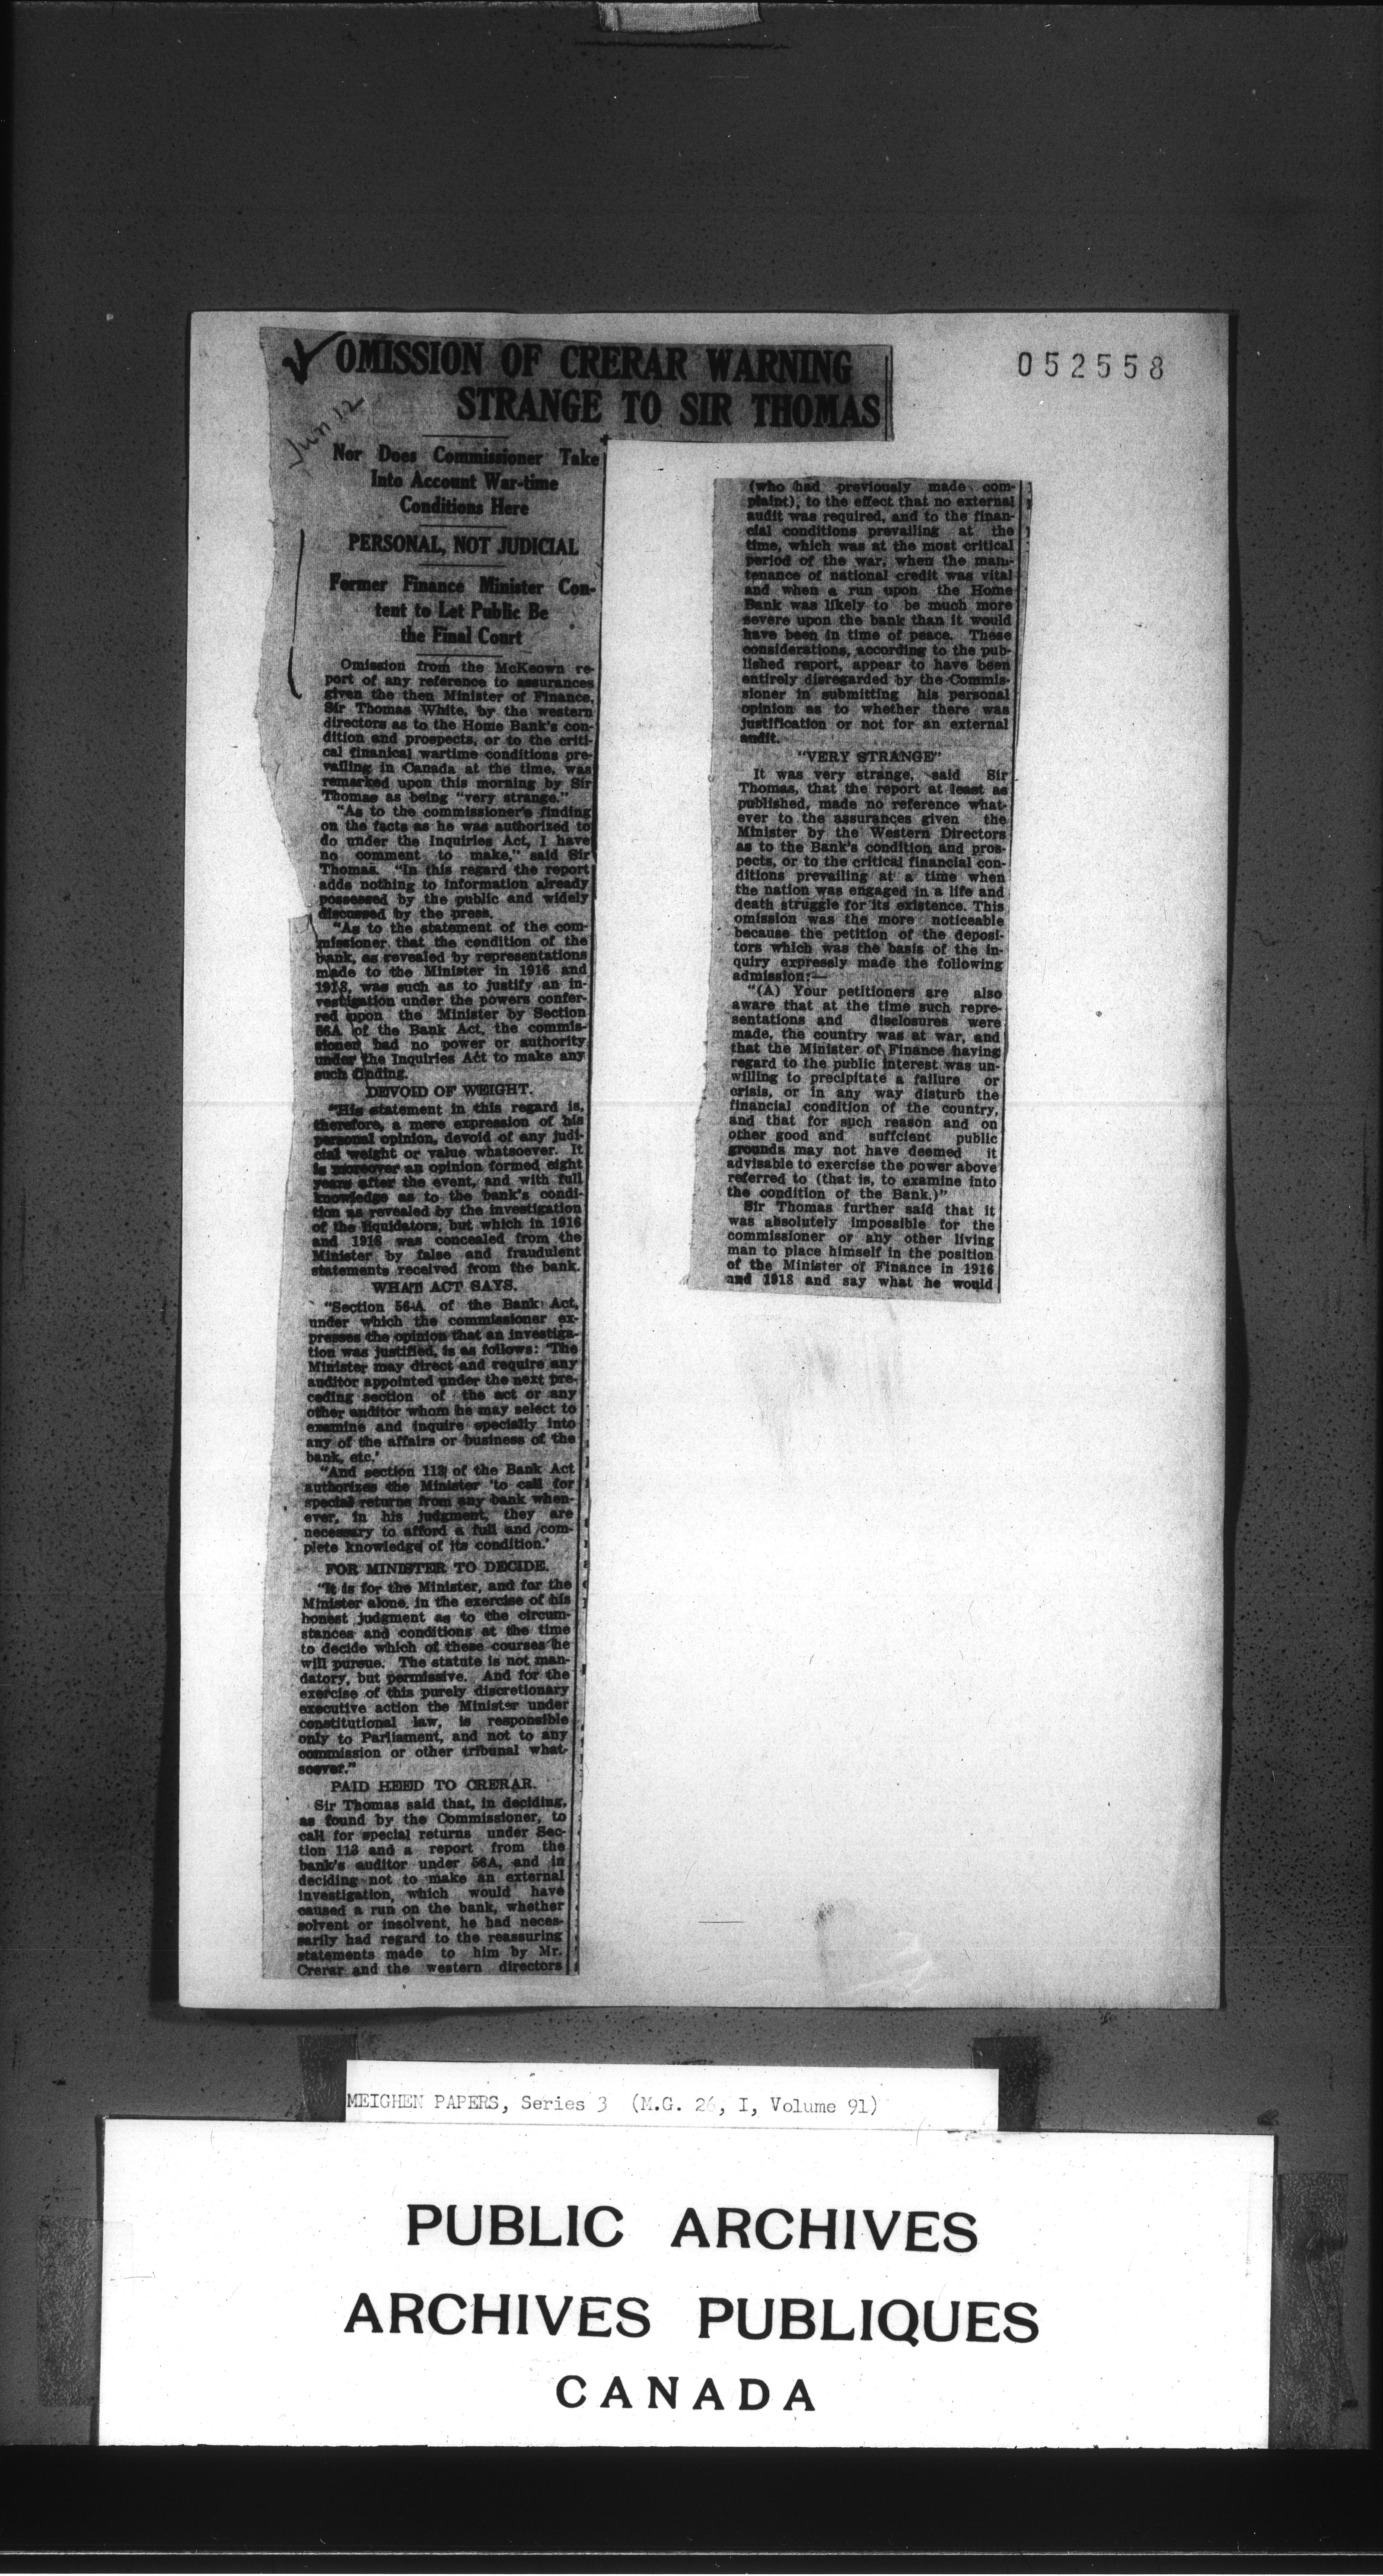 052558
OMISSION OF CRERAR WARNING
STRANGE TO SIR THOMAS
Jun 12
Nor Does Commissioner Take
Into Account War-time
Conditions Here
PERSONAL, NOT JUDICIAL
Former Finance Minister Con-
tent to Let Public Be
the Final Court
Omission from the McKeown re-
port of any reference to assurances
given the then Minister of Finance,
Sir Thomas White, by the western
directors as to the Home Bank's con-
dition and prospects, or to the criti-
cal finanical wartime conditions pre-
vailing in Canada at the time, was
remarked upon this morning by Sir
Thomas as being "very strange."
"As to the commissioner's finding
on the facts as he was authorized to
do under the Inquiries Act, I have
no comment to make," said Sir
Thomas. "In this regard the report
adds nothing to information already
possessed by the public and widely
discussed by the press.
"As to the statement of the com-
missioner that the condition of the
bank, as revealed by representations
made to the Minister in 1916 and
1918, was such as to justify an in-
vestigation under the powers confer-
red upon the Minister by Section
56A of the Bank Act, the commis-
sioner had no power or authority
under the Inquiries Act to make any
such finding.
DEVOID OF WEIGHT.
"His statement in this regard is,
therefore, a mere expression of his
personal opinion, devoid of any judi-
cial weight or value whatsoever. It
is moreover an opinion formed eight
years after the event, and with full
knowledge as to the bank's condi-
tion as revealed by the investigation
of the liquidators, but which in 1916
and 1916 was concealed from the
Minister by false and fraudulent
statements received from the bank.
WHAT ACT SAYS.
"Section 56-A of the Bank Act,
under which the commissioner ex-
presses the opinion that an investiga-
tion was justified, is as follows: 'The
Minister may direct and require any
auditor appointed under the next pre-
ceding section of the act or any
other auditor whom he may select to
examine and inquire specially into
any of the affairs or business of the
bank, etc.'
"And section 113 of the Bank Act
authorizes the Minister 'to call for
special returns from any bank when-
ever, in his judgment, they are
necessary to afford a full and com-
plete knowledge of its condition.'
FOR MINISTER TO DECIDE.
"It is for the Minister, and for the
Minister alone, in the exercise of his
honest judgment as to the circum-
stances and conditions at the time
to decide which of these courses he
will pursue. The statute is not man-
datory, but permissive. And for the
exercise of this purely discretionary
executive action the Minister under
constitutional law, is responsible
only to Parliament, and not to any
commission or other tribunal what-
soever."
PAID HEED TO CRERAR.
Sir Thomas said that, in deciding,
as found by the Commissioner, to
call for special returns under Sec-
tion 113 and a report from the
bank's auditor under 56A, and in
deciding not to make an external
investigation, which would have
caused a run on the bank, whether
solvent or insolvent, he had neces-
sarily had regard to the reassuring
statements made to him by Mr.
Crerar and the western directors
(who had previously made com-
plaint), to the effect that no external
audit was required, and to the finan-
cial conditions prevailing at the
time, which was at the most critical
period of the war, when the main-
tenance of national credit was vital
and when a run upon the Home
Bank was likely to be much more
severe upon the bank than it would
have been in time of peace. These
considerations, according to the pub-
lished report, appear to have been
entirely disregarded by the Commis-
sioner in submitting his personal
opinion as to whether there was
justification or not for an external
audit.
"VERY STRANGE"
It was very strange, said Sir
Thomas, that the report at least as
published, made no reference what-
ever to the assurances given the
Minister by the Western Directors
as to the Bank's condition and pros-
pects, or to the critical financial con-
ditions prevailing at a time when
the nation was engaged in a life and
death struggle for its existence. This
omission was the more noticeable
because the petition of the deposi-
tors which was the basis of the in-
quiry expressly made the following
admission:—
"(A) Your petitioners are also
aware that at the time such repre-
sentations and disclosures were
made, the country was at war, and
that the Minister of Finance having
regard to the public interest was un-
willing to precipitate a failure or
crisis, or in any way disturb the
financial condition of the country,
and that for such reason and on
other good and suffcient public
grounds may not have deemed it
advisable to exercise the power above
referred to (that is, to examine into
the condition of the Bank.)"
Sir Thomas further said that it
was absolutely impossible for the
commissioner or any other living
man to place himself in the position
of the Minister of Finance in 1916
and 1918 and say what he would
MEIGHEN PAPERS, Series 3 (M.G. 26, I, Volume 91)
PUBLIC ARCHIVES
ARCHIVES PUBLIQUES
CANADA